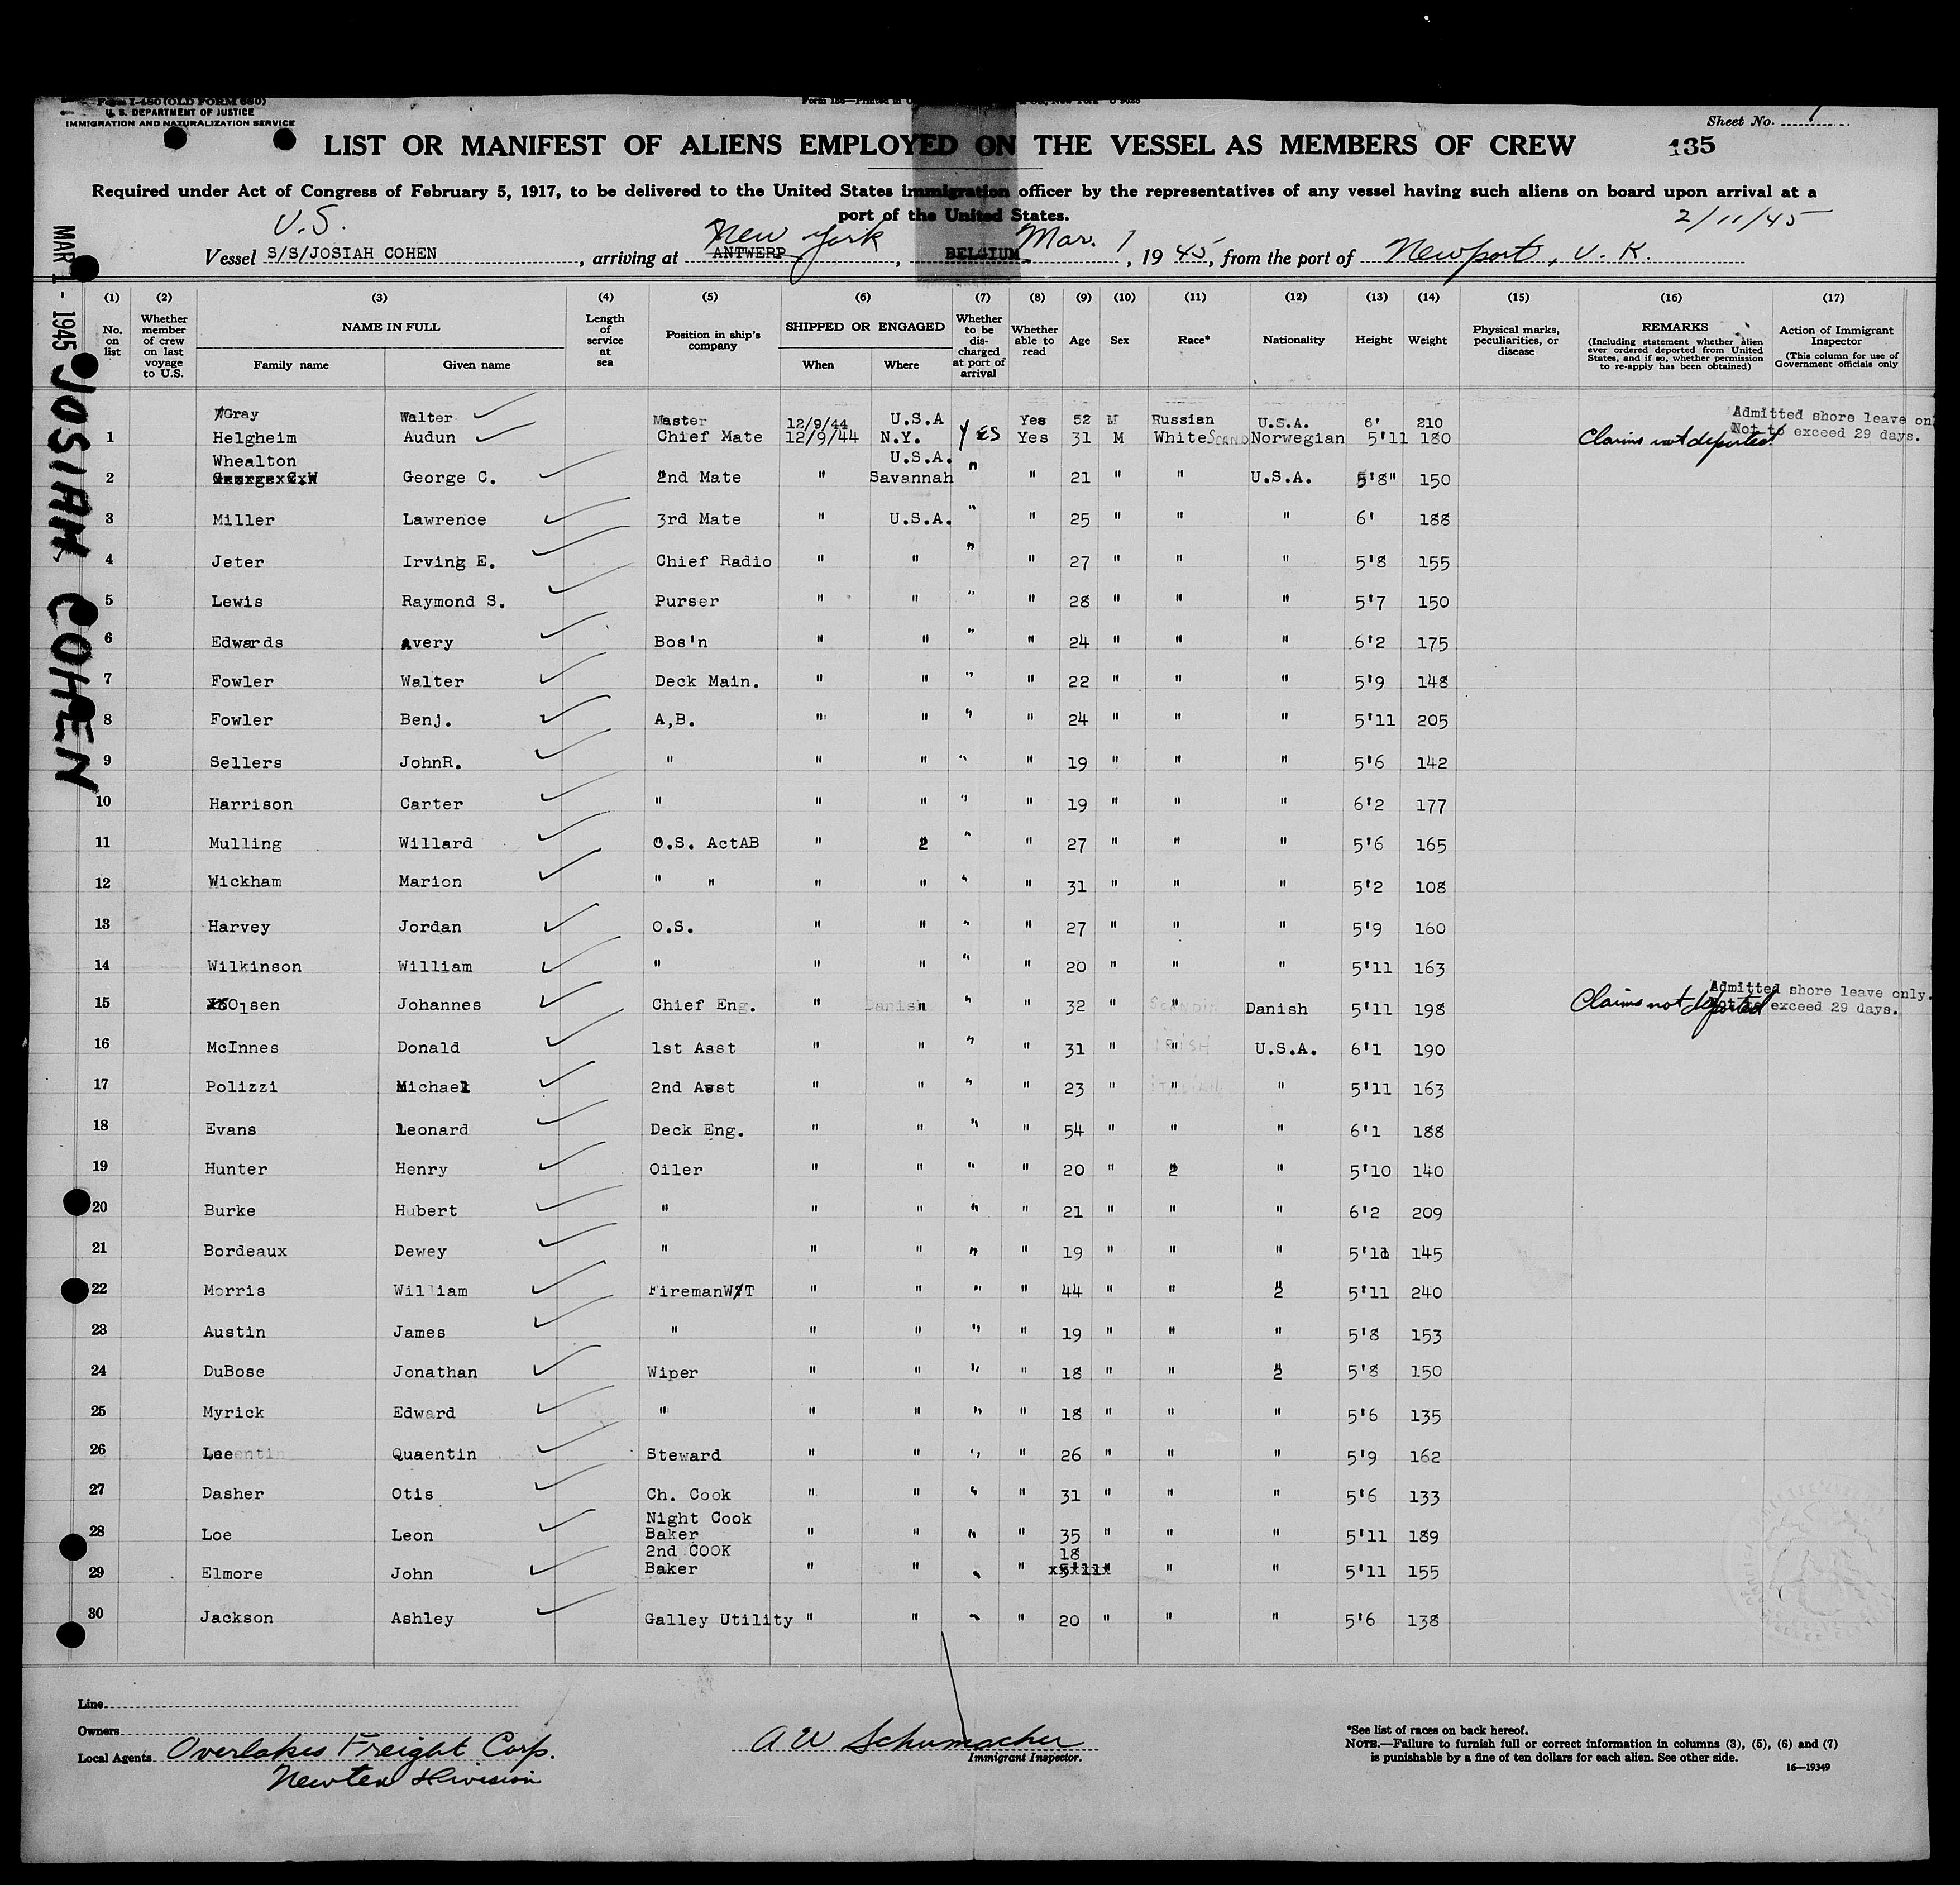 Form I-480 (OLD FORM 680)
U. S. DEPARTMENT OF JUSTICE
IMMIGRATION AND NATURALIZATION SERVICE
Sheet No. 1
LIST OR MANIFEST OF ALIENS EMPLOYED ON THE VESSEL AS MEMBERS OF CREW 135
Required under Act of Congress of February 5, 1917, to be delivered to the United States immigration officer by the representatives of any vessel having such aliens on board upon arrival at a
port of the United States.
U.S. 2/11/45
Vessel S/S/JOSIAH COHEN, arriving at ANTWERP New York, BELGIUM Mar. 1, 1945, from the port of Newport, U.K.
MAR 1 - 1945
JOSIAH COHEN
(1) (2) (3) (4) (5) (6) (7) (8) (9) (10) (11) (12) (13) (14) (15) (16) (17)
No. on list
Whether member of crew on last voyage to U.S.
NAME IN FULL
Family name Given name
Length of service at sea
Position in ship's company
SHIPPED OR ENGAGED
When Where
Whether to be discharged at port of arrival
Whether able to read
Age Sex Race* Nationality Height Weight
Physical marks, peculiarities, or disease
REMARKS
(Including statement whether alien ever ordered deported from United States, and if so, whether permission to re-apply has been obtained)
Action of Immigrant Inspector
(This column for use of Government officials only
Gray Walter Master 12/9/44 U.S.A Yes 52 M Russian U.S.A. 6' 210
1 Helgheim Audun Chief Mate 12/9/44 N.Y. YES Yes 31 M White SCAND Norwegian 5'11 180 Claims not deported Admitted shore leave on
Not to exceed 29 days.
Whealton U.S.A.
2 George C. 2nd Mate " Savannah " " 21 " " U.S.A. 5'8" 150
3 Miller Lawrence 3rd Mate " U.S.A. " " 25 " " " 6' 188
4 Jeter Irving E. Chief Radio " " " " 27 " " " 5'8 155
5 Lewis Raymond S. Purser " " " " 28 " " " 5'7 150
6 Edwards Avery Bos'n " " " " 24 " " " 6'2 175
7 Fowler Walter Deck Main. " " " " 22 " " " 5'9 148
8 Fowler Benj. A,B. " " " " 24 " " " 5'11 205
9 Sellers JohnR. " " " " " 19 " " " 5'6 142
10 Harrison Carter " " " " " 19 " " " 6'2 177
11 Mulling Willard O.S. ActAB " 2 " " 27 " " " 5'6 165
12 Wickham Marion " " " " " " 31 " " " 5'2 108
13 Harvey Jordan O.S. " " " " 27 " " " 5'9 160
14 Wilkinson William " " " " " 20 " " " 5'11 163
15 Olsen Johannes Chief Eng. " " " " 32 " " Danish 5'11 198 Claims not deported Admitted shore leave only.
Not to exceed 29 days.
16 McInnes Donald 1st Asst " " " " 31 " " U.S.A. 6'1 190
17 Polizzi Michael 2nd Asst " " " " 23 " " " 5'11 163
18 Evans Leonard Deck Eng. " " " " 54 " " " 6'1 188
19 Hunter Henry Oiler " " " " 20 " 2 " 5'10 140
20 Burke Hubert " " " " " 21 " " " 6'2 209
21 Bordeaux Dewey " " " " " 19 " " " 5'11 145
22 Morris William FiremanW/T " " " " 44 " " 2 5'11 240
23 Austin James " " " " " 19 " " " 5'8 153
24 DuBose Jonathan Wiper " " " " 18 " " 2 5'8 150
25 Myrick Edward " " " " " 18 " " " 5'6 135
26 Lee Quaentin Steward " " " " 26 " " " 5'9 162
27 Dasher Otis Ch. Cook " " " " 31 " " " 5'6 133
Night Cook
28 Loe Leon Baker " " " " 35 " " " 5'11 189
2nd COOK 18
29 Elmore John Baker " " " " " " 5'11 155
30 Jackson Ashley Galley Utility " " " " 20 " " " 5'6 138
Line
Owners
Local Agents Overlakes Freight Corp.
Newtex Division
A W Schumacher
Immigrant Inspector.
*See list of races on back hereof.
NOTE.—Failure to furnish full or correct information in columns (3), (5), (6) and (7)
is punishable by a fine of ten dollars for each alien. See other side.
16—19349